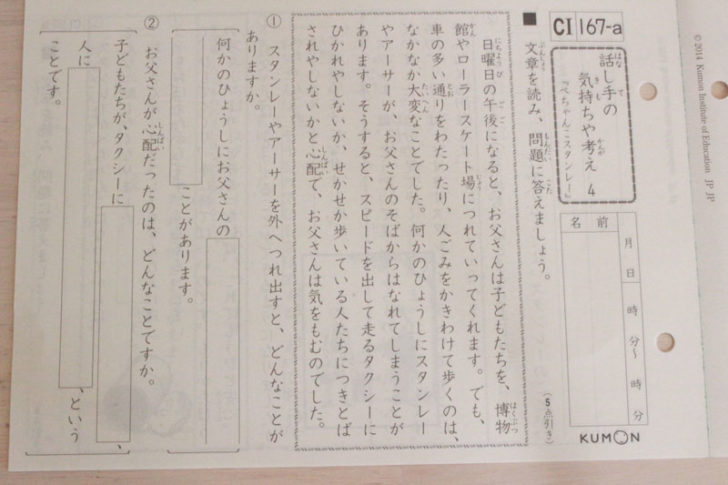 CI 167-a
話し手の
気持ちや考え 4
『ぺちゃんこスタンレー』
名前
月 日
時 分〜 時 分
KUMON
© 2014 Kumon Institute of Education JP JP
■ 文章を読み、問題に答えましょう。
(5点引き)
日曜日の午後になると、お父さんは子どもたちを、博物
館やローラースケート場につれていってくれます。でも、
車の多い通りをわたったり、人ごみをかきわけて歩くのは、
なかなか大変なことでした。何かのひょうしにスタンレー
やアーサーが、お父さんのそばからはなれてしまうことが
あります。そうすると、スピードを出して走るタクシーに
ひかれやしないか、せかせか歩いている人たちにつきとば
されやしないかと心配で、お父さんは気をもむのでした。
① スタンレーやアーサーを外へつれ出すと、どんなことが
ありますか。
何かのひょうしにお父さんの
ことがあります。
② お父さんが心配だったのは、どんなことですか。
子どもたちが、タクシーに 、
人に 、という
ことです。